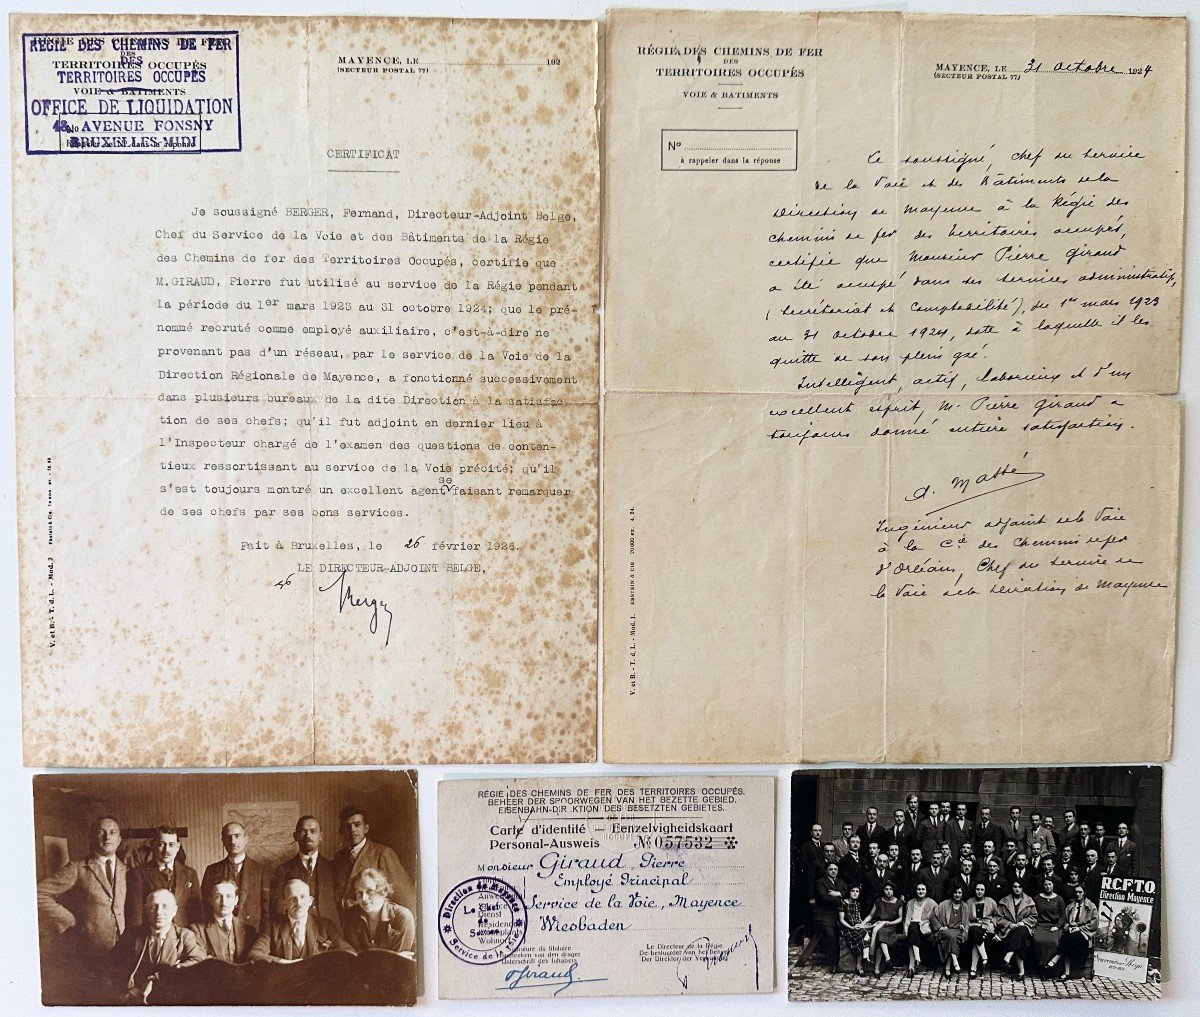 RÉGIE DES CHEMINS DE FER
DES
TERRITOIRES OCCUPÉS
VOIE & BATIMENTS
No
Rappeler ce No dans la réponse
RÉGIE DES CHEMINS DE FER
DES
TERRITOIRES OCCUPÉS
OFFICE DE LIQUIDATION
48, AVENUE FONSNY
BRUXELLES-MIDI
MAYENCE, LE 192
(SECTEUR POSTAL 77)
CERTIFICAT
Je soussigné BERGER, Fernand, Directeur-Adjoint Belge,
Chef du Service de la Voie et des Bâtiments de la Régie
des Chemins de fer des Territoires Occupés, certifie que
M.GIRAUD, Pierre fut utilisé au service de la Régie pendant
la période du 1er mars 1923 au 31 octobre 1924; que le pré-
nommé recruté comme employé auxiliaire, c'est-à-dire ne
provenant pas d'un réseau, par le service de la Voie de la
Direction Régionale de Mayence, a fonctionné successivement
dans plusieurs bureaux de la dite Direction à la satisfac-
tion de ses chefs; qu'il fut adjoint en dernier lieu à
l'Inspecteur chargé de l'examen des questions de conten-
tieux ressortissant au service de la Voie précité; qu'il
s'est toujours montré un excellent agent se faisant remarquer
de ses chefs par ses bons services.
Fait à Bruxelles, le 26 février 1926.
LE DIRECTEUR-ADJOINT BELGE,
Berger
V. et B. - T. d. L. - Mod. 2
RÉGIE DES CHEMINS DE FER
DES
TERRITOIRES OCCUPÉS
VOIE & BATIMENTS
MAYENCE, LE 31 octobre 1924
(SECTEUR POSTAL 77)
No
à rappeler dans la réponse
Le soussigné, Chef du Service
de la Voie et des Bâtiments de la
Direction de Mayence à la Régie des
Chemins de fer des territoires occupés,
certifie que Monsieur Pierre Giraud
a été occupé dans ses services administratifs,
(Secrétariat et Comptabilité), du 1er mars 1923
au 31 octobre 1924, date à laquelle il les
quitte de son plein gré.
Intelligent, actif, laborieux et d'un
excellent esprit, M. Pierre Giraud a
toujours donné entière satisfaction.
Ingénieur adjoint de la Voie
à la Cie des Chemins de fer
d'Orléans, Chef du Service de
la Voie de la Direction de Mayence
V. et B. - T. d. L. - Mod. 1. EBSTEIN & CIE 20000 ex. 4. 24.
RÉGIE DES CHEMINS DE FER DES TERRITOIRES OCCUPÉS.
BEHEER DER SPOORWEGEN VAN HET BEZETTE GEBIED.
EISENBAHN-DIREKTION DES BESETZTEN GEBIETES.
Carte d'identité — Eenzelvigheidskaart
Personal-Ausweis No 057532
Monsieur Giraud Pierre
Employé Principal
Service de la Voie, Mayence
Wiesbaden
Direction de Mayence
Le Chef
de
Section
Service de la Voie
Signature du titulaire
Handteeken van den drager
Unterschrift des Inhabers
Le Directeur de la Régie
De bestuurder van het Beheer
Der Direktor der
PGiraud
R.C.F.T.O.
Direction Mayence